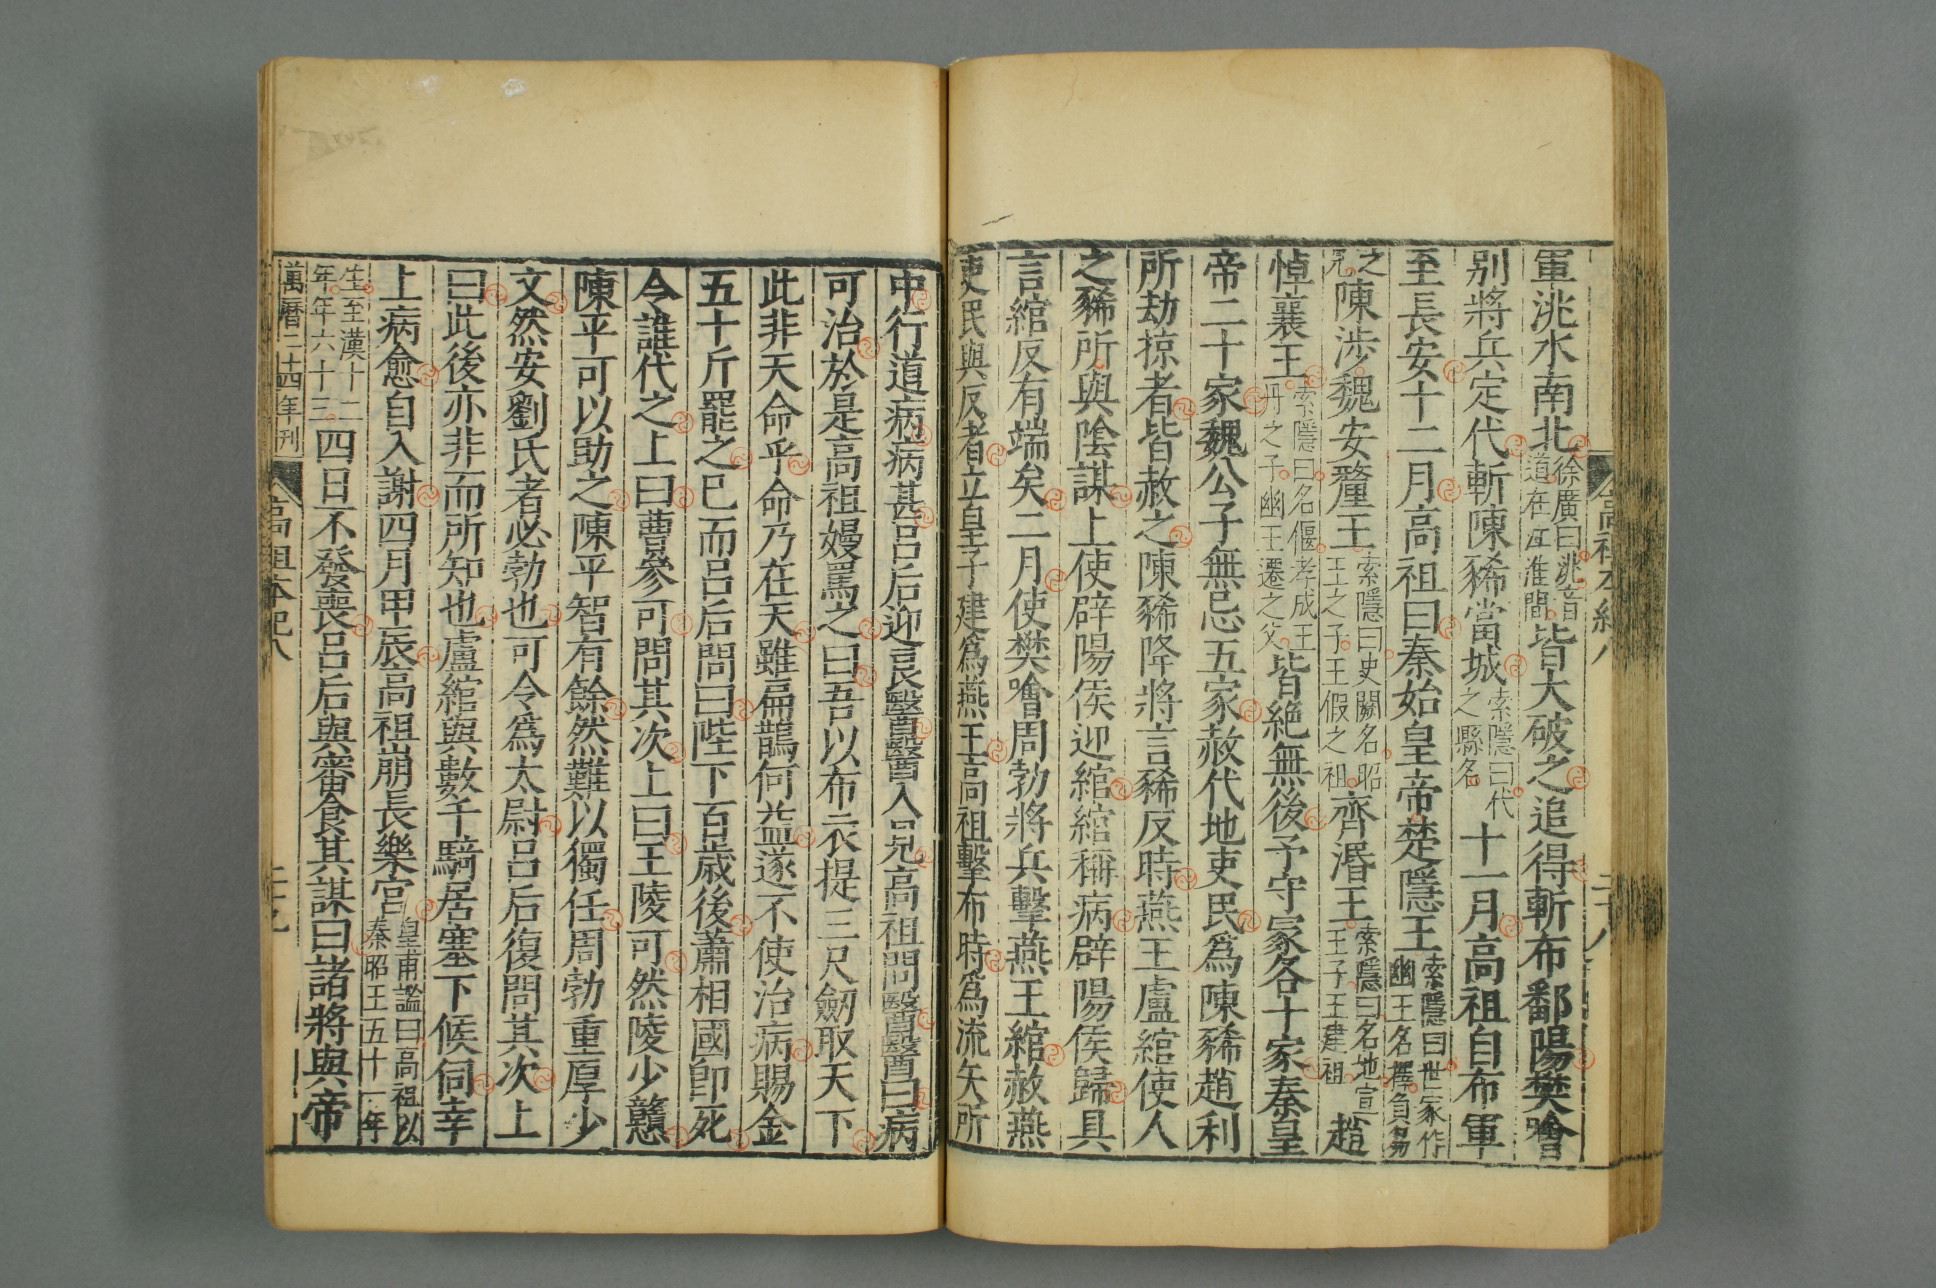 軍洮水南北徐廣曰洮音道在江淮間皆大破之追得斬布鄱陽樊噲
别將兵定代斬陳豨當城索隱曰代之縣名十一月高祖自布軍
至長安十二月高祖曰秦始皇帝楚隱王索隱曰世家作幽王名擇負芻
之兄陳涉魏安釐王索隱曰史闕名昭王之子王假之祖齊湣王索隱曰名地宣王子王建祖趙
悼襄王索隱曰名偃孝成王丹之子幽王遷之父皆絶無後予守冢各十家秦皇
帝二十家魏公子無忌五家赦代地吏民爲陳豨趙利
所劫掠者皆赦之陳豨降將言豨反時燕王盧綰使人
之豨所與陰謀上使辟陽侯迎綰綰稱病辟陽侯歸具
言綰反有端矣二月使樊噲周勃將兵擊燕王綰赦燕
吏民與反者立皇子建爲燕王高祖擊布時爲流矢所
高祖本紀八
二十八
中行道病病甚吕后迎良醫醫入見高祖問醫醫曰病
可治於是高祖嫚罵之曰吾以布衣提三尺劒取天下
此非天命乎命乃在天雖扁鵲何益遂不使治病賜金
五十斤罷之已而吕后問曰陛下百歲後蕭相國即死
令誰代之上曰曹參可問其次上曰王陵可然陵少戇
陳平可以助之陳平智有餘然難以獨任周勃重厚少
文然安劉氏者必勃也可令爲太尉吕后復問其次上
曰此後亦非而所知也盧綰與數千騎居塞下候伺幸
上病愈自入謝四月甲辰高祖崩長樂宫皇甫謐曰高祖以秦昭王五十一年
生至漢十二年年六十三四日不發喪吕后與審食其謀曰諸將與帝
萬曆二十四年刊
高祖本紀八
二十九